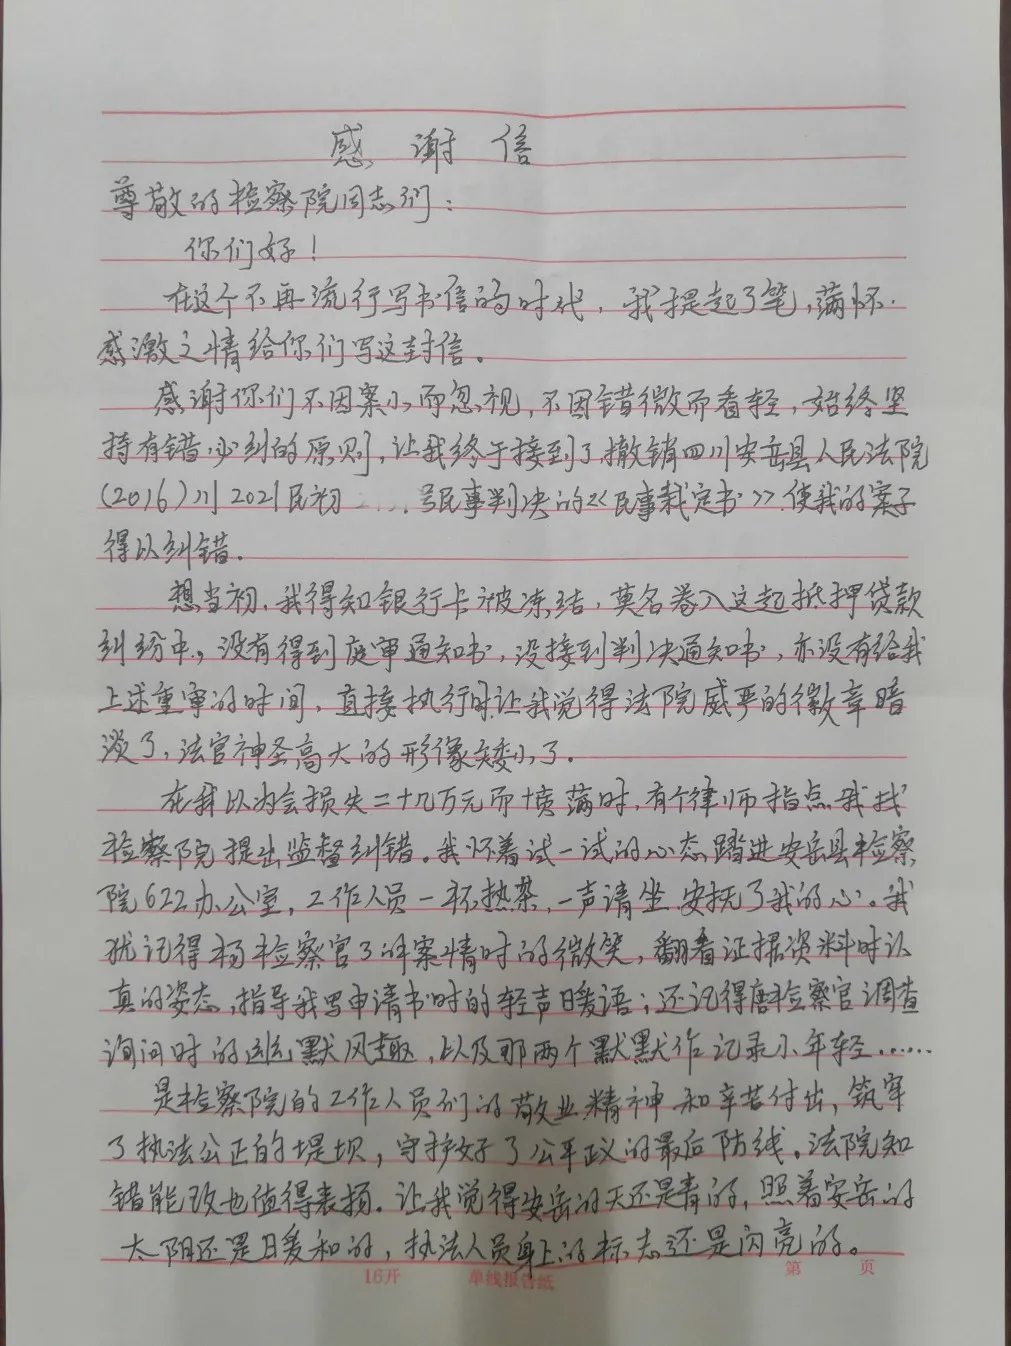 感谢信
尊敬的检察院同志们：
你们好！
在这个不再流行写书信的时代，我提起了笔，满怀
感激之情给你们写这封信。
感谢你们不因案小而忽视，不因错微而看轻，始终坚
持有错必纠的原则，让我终于接到了撤销四川安岳县人民法院
（2016）川2021民初 号民事判决的《民事裁定书》使我的案子
得以纠错。
想当初，我得知银行卡被冻结，莫名卷入这起抵押贷款
纠纷中，没有得到庭审通知书，没接到判决通知书，亦没有给我
上述重审的时间，直接执行时让我觉得法院威严的徽章暗
淡了，法官神圣高大的形像矮小了。
在我以为会损失二十几万元而愤满时，有个律师指点我找
检察院提出监督纠错。我怀着试一试的心态踏进安岳县检察
院622办公室，工作人员一杯热茶，一声请坐安抚了我的心。我
犹记得杨检察官了解案情时的微笑，翻看证据资料时认
真的姿态，指导我写申请书时的轻声暖语；还记得唐检察官调查
询问时的幽默风趣，以及那两个默默作记录小年轻……
是检察院的工作人员们的敬业精神和辛苦付出，筑牢
了执法公正的堤坝，守护好了公平政的最后防线。法院知
错能改也值得表扬。让我觉得安岳的天还是青的，照着安岳的
太阳还是暖和的，执法人员身上的标志还是闪亮的。
16开 单线报告纸 第 页